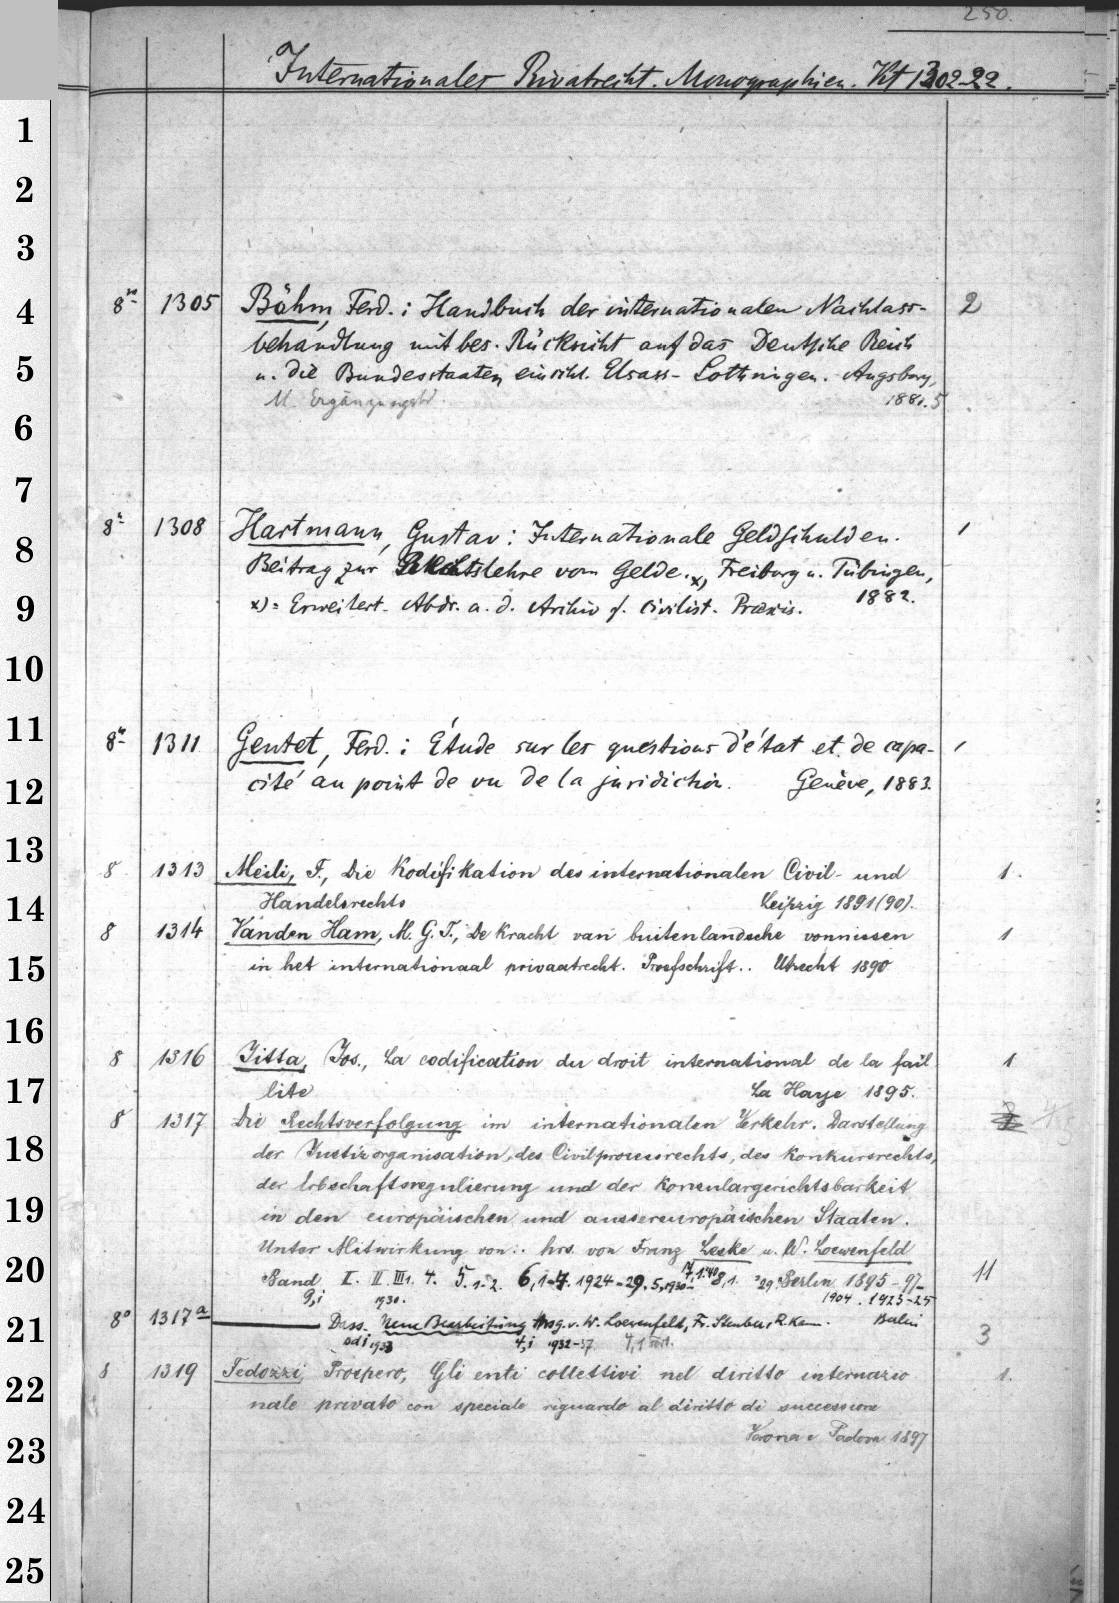 250.
Internationales Privatrecht. Monographien. Kt 1302-22.
1
2
3
4
5
6
7
8
9
10
11
12
13
14
15
16
17
18
19
20
21
22
23
24
25
8° 1305 Böhm, Ferd.: Handbuch der internationalen Nachlass- 2
behandlung mit bes. Rücksicht auf das Deutsche Reich
u. die Bundesstaaten einschl. Elsass-Lothringen. Augsburg,
M. Ergänzungsbd. 1881.5
8° 1308 Hartmann, Gustav: Internationale Geldschulden. 1
Beitrag zur Rechtslehre vom Gelde. x) Freiburg u. Tübingen,
x) = Erweitert. Abdr. a. d. Archiv f. civilist. Praxis. 1882.
8° 1311 Gentet, Ferd.: Étude sur les questions d'état et de capa- 1
cité au point de vu de la juridiction. Genève, 1883.
8 1313 Meili, F., Die Kodifikation des internationalen Civil- und 1.
Handelsrechts Leipzig 1891(90).
8 1314 Vanden Ham, M. G. T., De Kracht van buitenlandsche vonnissen 1
in het internationaal privaatrecht. Proefschrift.. Utrecht 1890
8 1316 Jitta, Jos., La codification du droit international de la fail 1
lite La Haye 1895.
8 1317 Die Rechtsverfolgung im internationalen Verkehr. Darstellung
der Justizorganisation, des Civilprocessrechts, des Konkursrechts,
der Erbschaftsregulierung und der Konsulargerichtsbarkeit
in den europäischen und aussereuropäischen Staaten.
Unter Mitwirkung von.. hrs. von Franz Leske u. W. Loewenfeld
Band I. II. III1. 4. 5.1-2. 6,1-7. 1924-29. 8,1. Berlin 1895-97- 11
9,i 1930. 1904. 1923-25
8° 1317a Dass. Neue Bearbeitung Hrsg. v. W. Loewenfeld, Fr. Stenber, R. Kann. Berlin 3
4,i 1932-37
8 1319 Fedozzi, Prospero, Gli enti collettivi nel diritto internazio 1.
nale privato con speciale riguardo al diritto di successione
Verona e Padova 1897